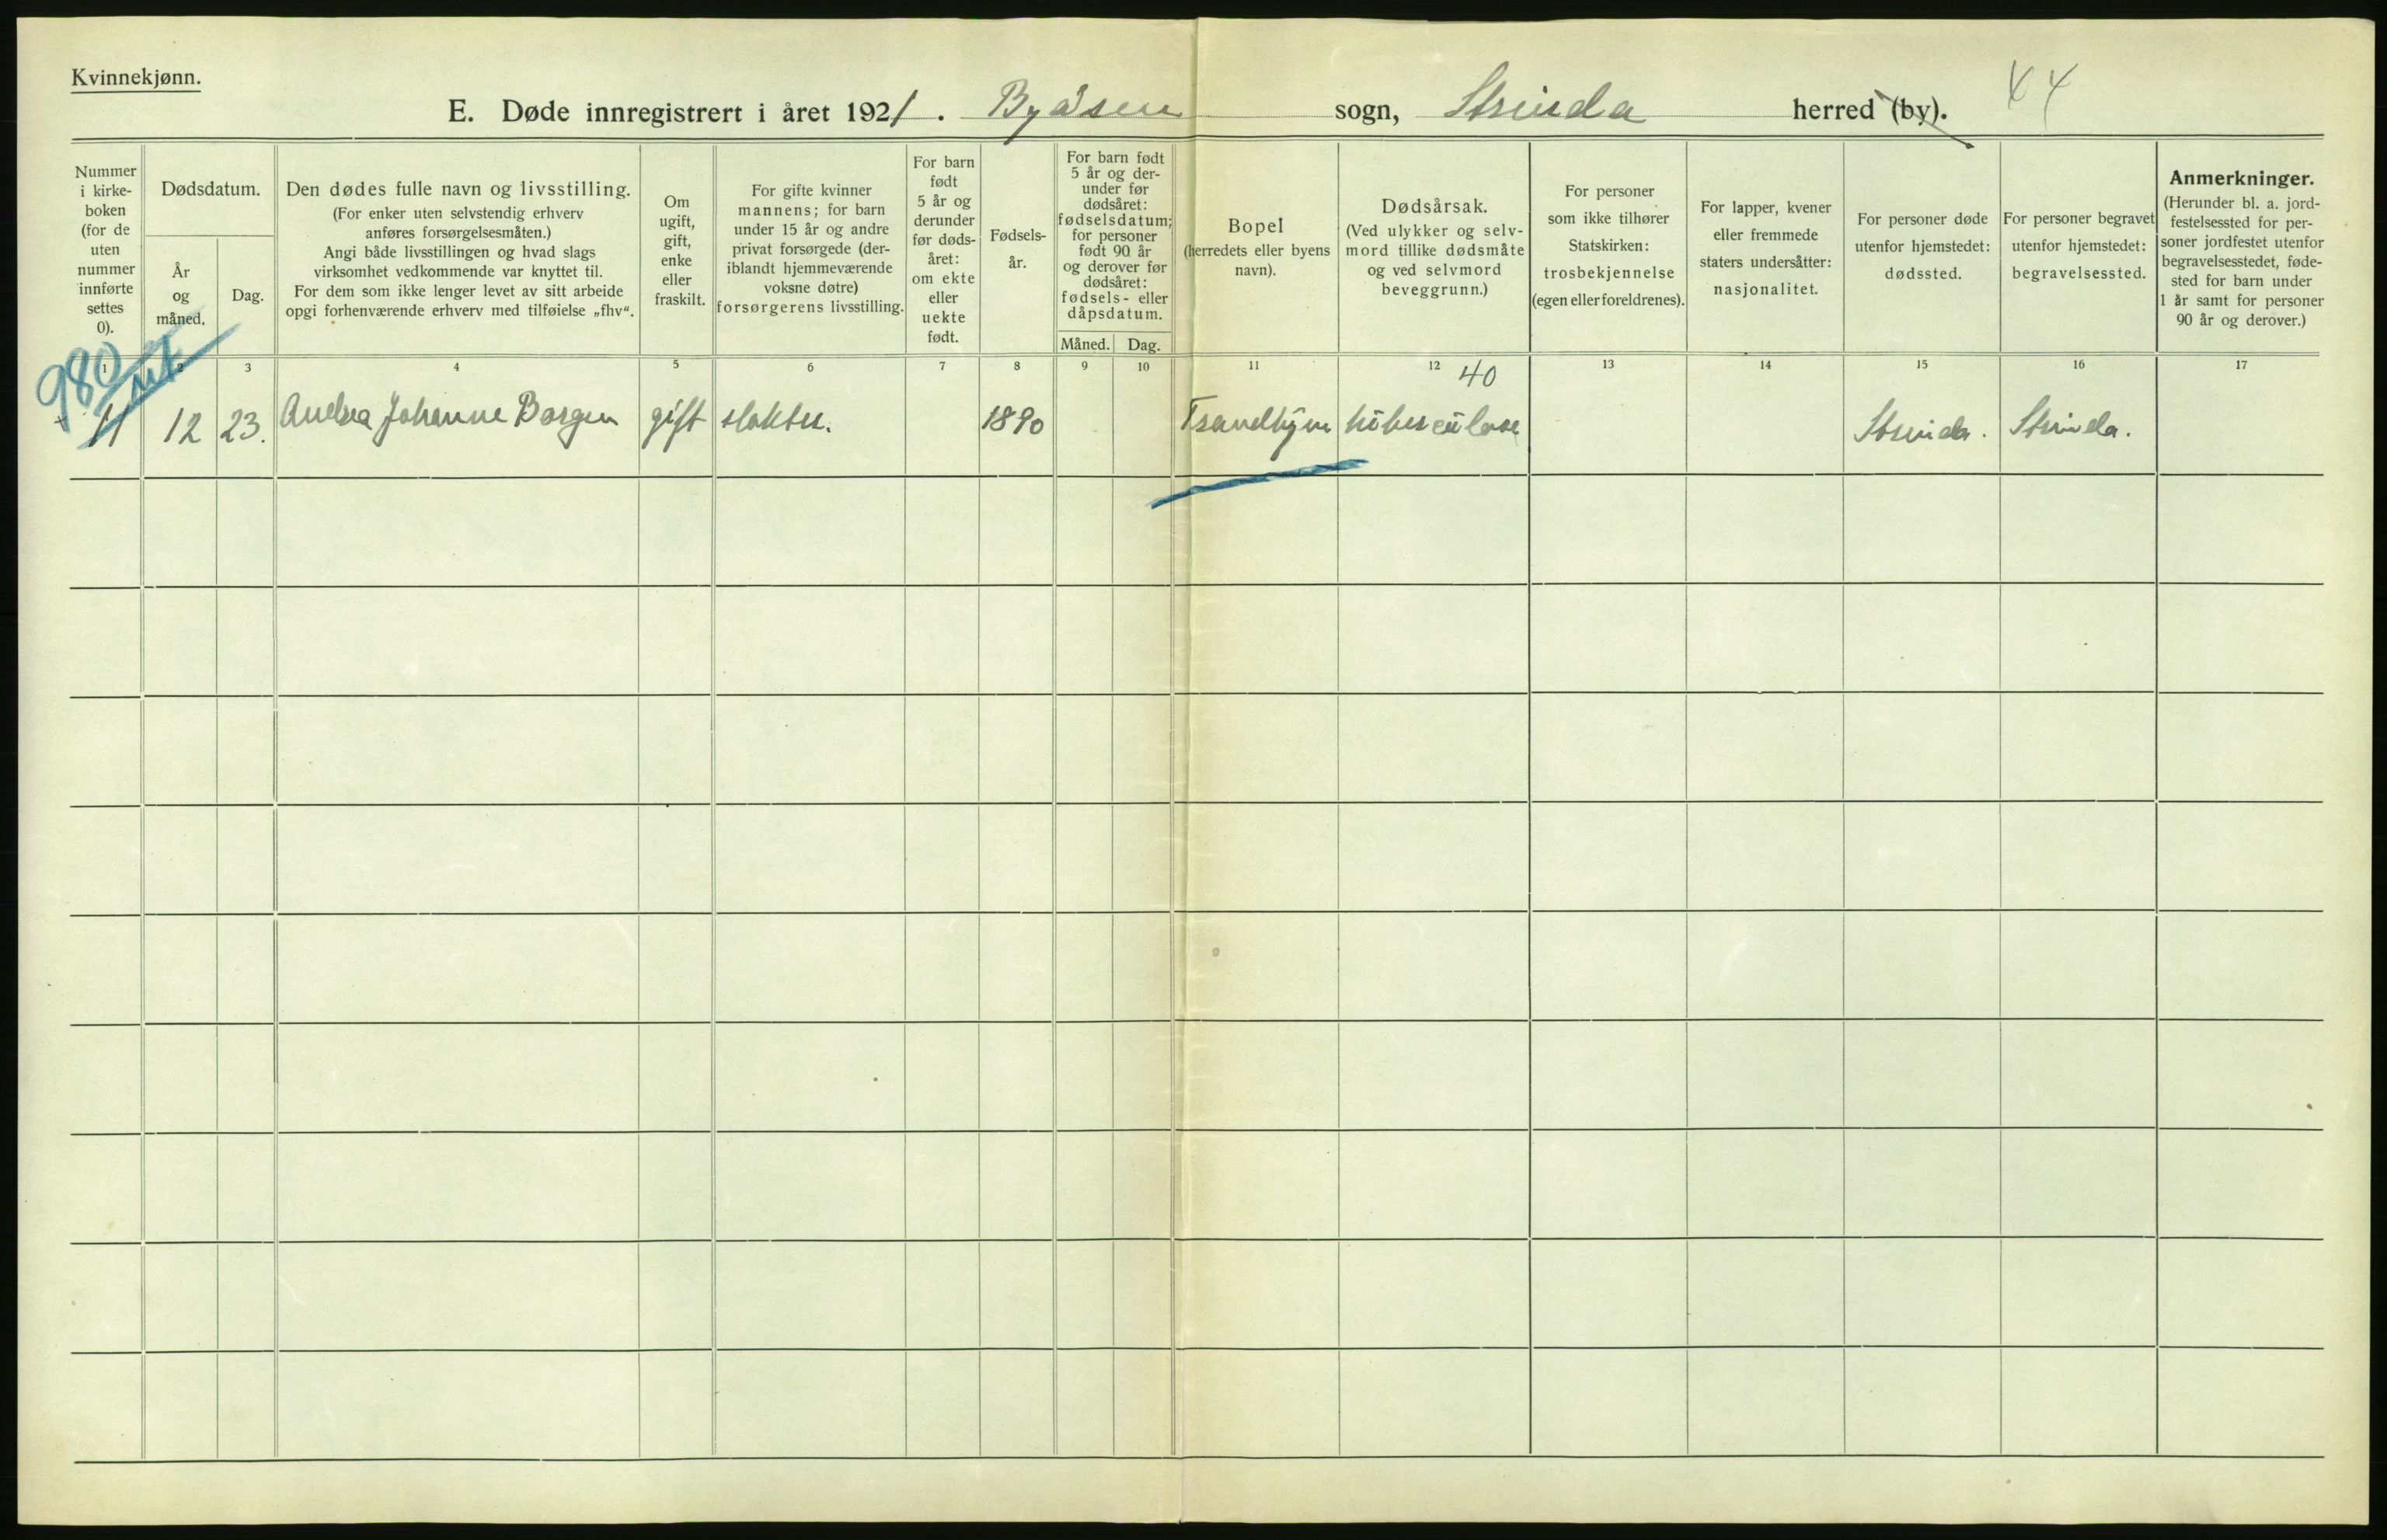 Kvinnekjønn.
E. Døde innregistrert i året 1921. Byåsen sogn, Strinda herred (by). 44
Nummer
i kirke-
boken
(for de
uten
nummer
innførte
settes
0).
Dødsdatum.
År
og
måned.
Dag.
Den dødes fulle navn og livsstilling.
(For enker uten selvstendig erhverv
anføres forsørgelsesmåten.)
Angi både livsstillingen og hvad slags
virksomhet vedkommende var knyttet til.
For dem som ikke lenger levet av sitt arbeide
opgi forhenværende erhverv med tilføielse „fhv“.
Om
ugift,
gift,
enke
eller
fraskilt.
For gifte kvinner
mannens; for barn
under 15 år og andre
privat forsørgede (der-
iblandt hjemmeværende
voksne døtre)
forsørgerens livsstilling.
For barn
født
5 år og
derunder
før døds-
året:
om ekte
eller
uekte
født.
Fødsels-
år.
For barn født
5 år og der-
under før
dødsåret:
fødselsdatum;
for personer
født 90 år
og derover før
dødsåret:
fødsels- eller
dåpsdatum.
Måned. Dag.
Bopel
(herredets eller byens
navn).
Dødsårsak.
(Ved ulykker og selv-
mord tillike dødsmåte
og ved selvmord
beveggrunn.)
For personer
som ikke tilhører
Statskirken:
trosbekjennelse
(egen eller foreldrenes).
For lapper, kvener
eller fremmede
staters undersåtter:
nasjonalitet.
For personer døde
utenfor hjemstedet:
dødssted.
For personer begravet
utenfor hjemstedet:
begravelsessted.
Anmerkninger.
(Herunder bl. a. jord-
festelsessted for per-
soner jordfestet utenfor
begravelsesstedet, føde-
sted for barn under
1 år samt for personer
90 år og derover.)
980 ut
1 2 3 4 5 6 7 8 9 10 11 12 13 14 15 16 17
40
11 12 23. Andrea Johanne Borgen gift slakter. 1890 Trondhjem tuberculose Strinda. Strinda.